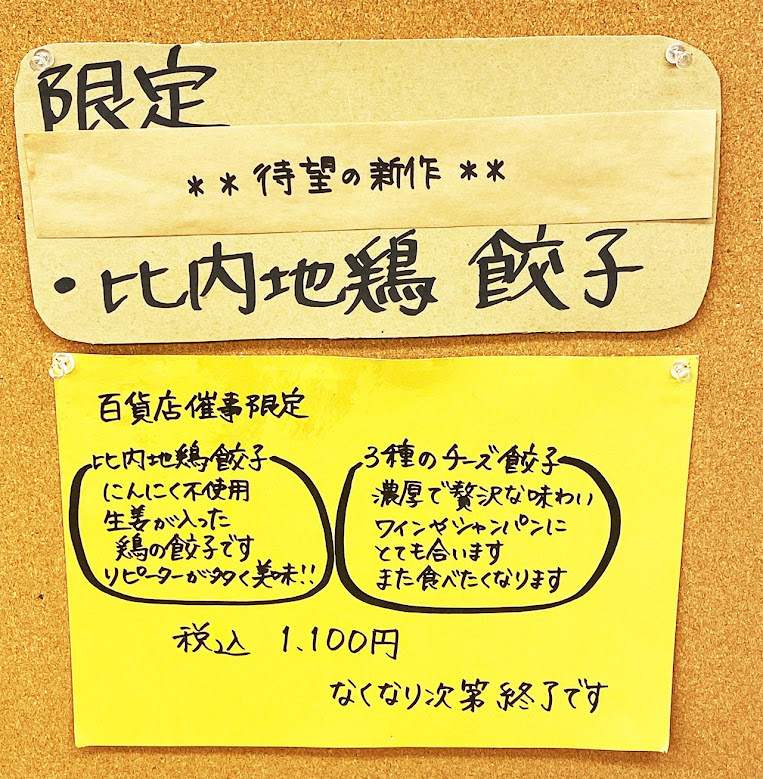 限定
**待望の新作**
・比内地鶏 餃子
百貨店催事限定
比内地鶏餃子
にんにく不使用
生姜が入った
鶏の餃子です
リピーターが多く美味!!
3種のチーズ餃子
濃厚で贅沢な味わい
ワインやシャンパンに
とても合います
また食べたくなります
税込 1.100円
なくなり次第終了です